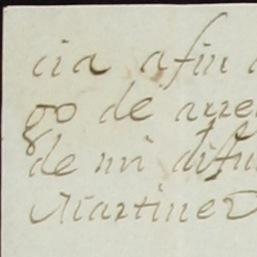 cia afin
go de arre
de mi difu
Martinez